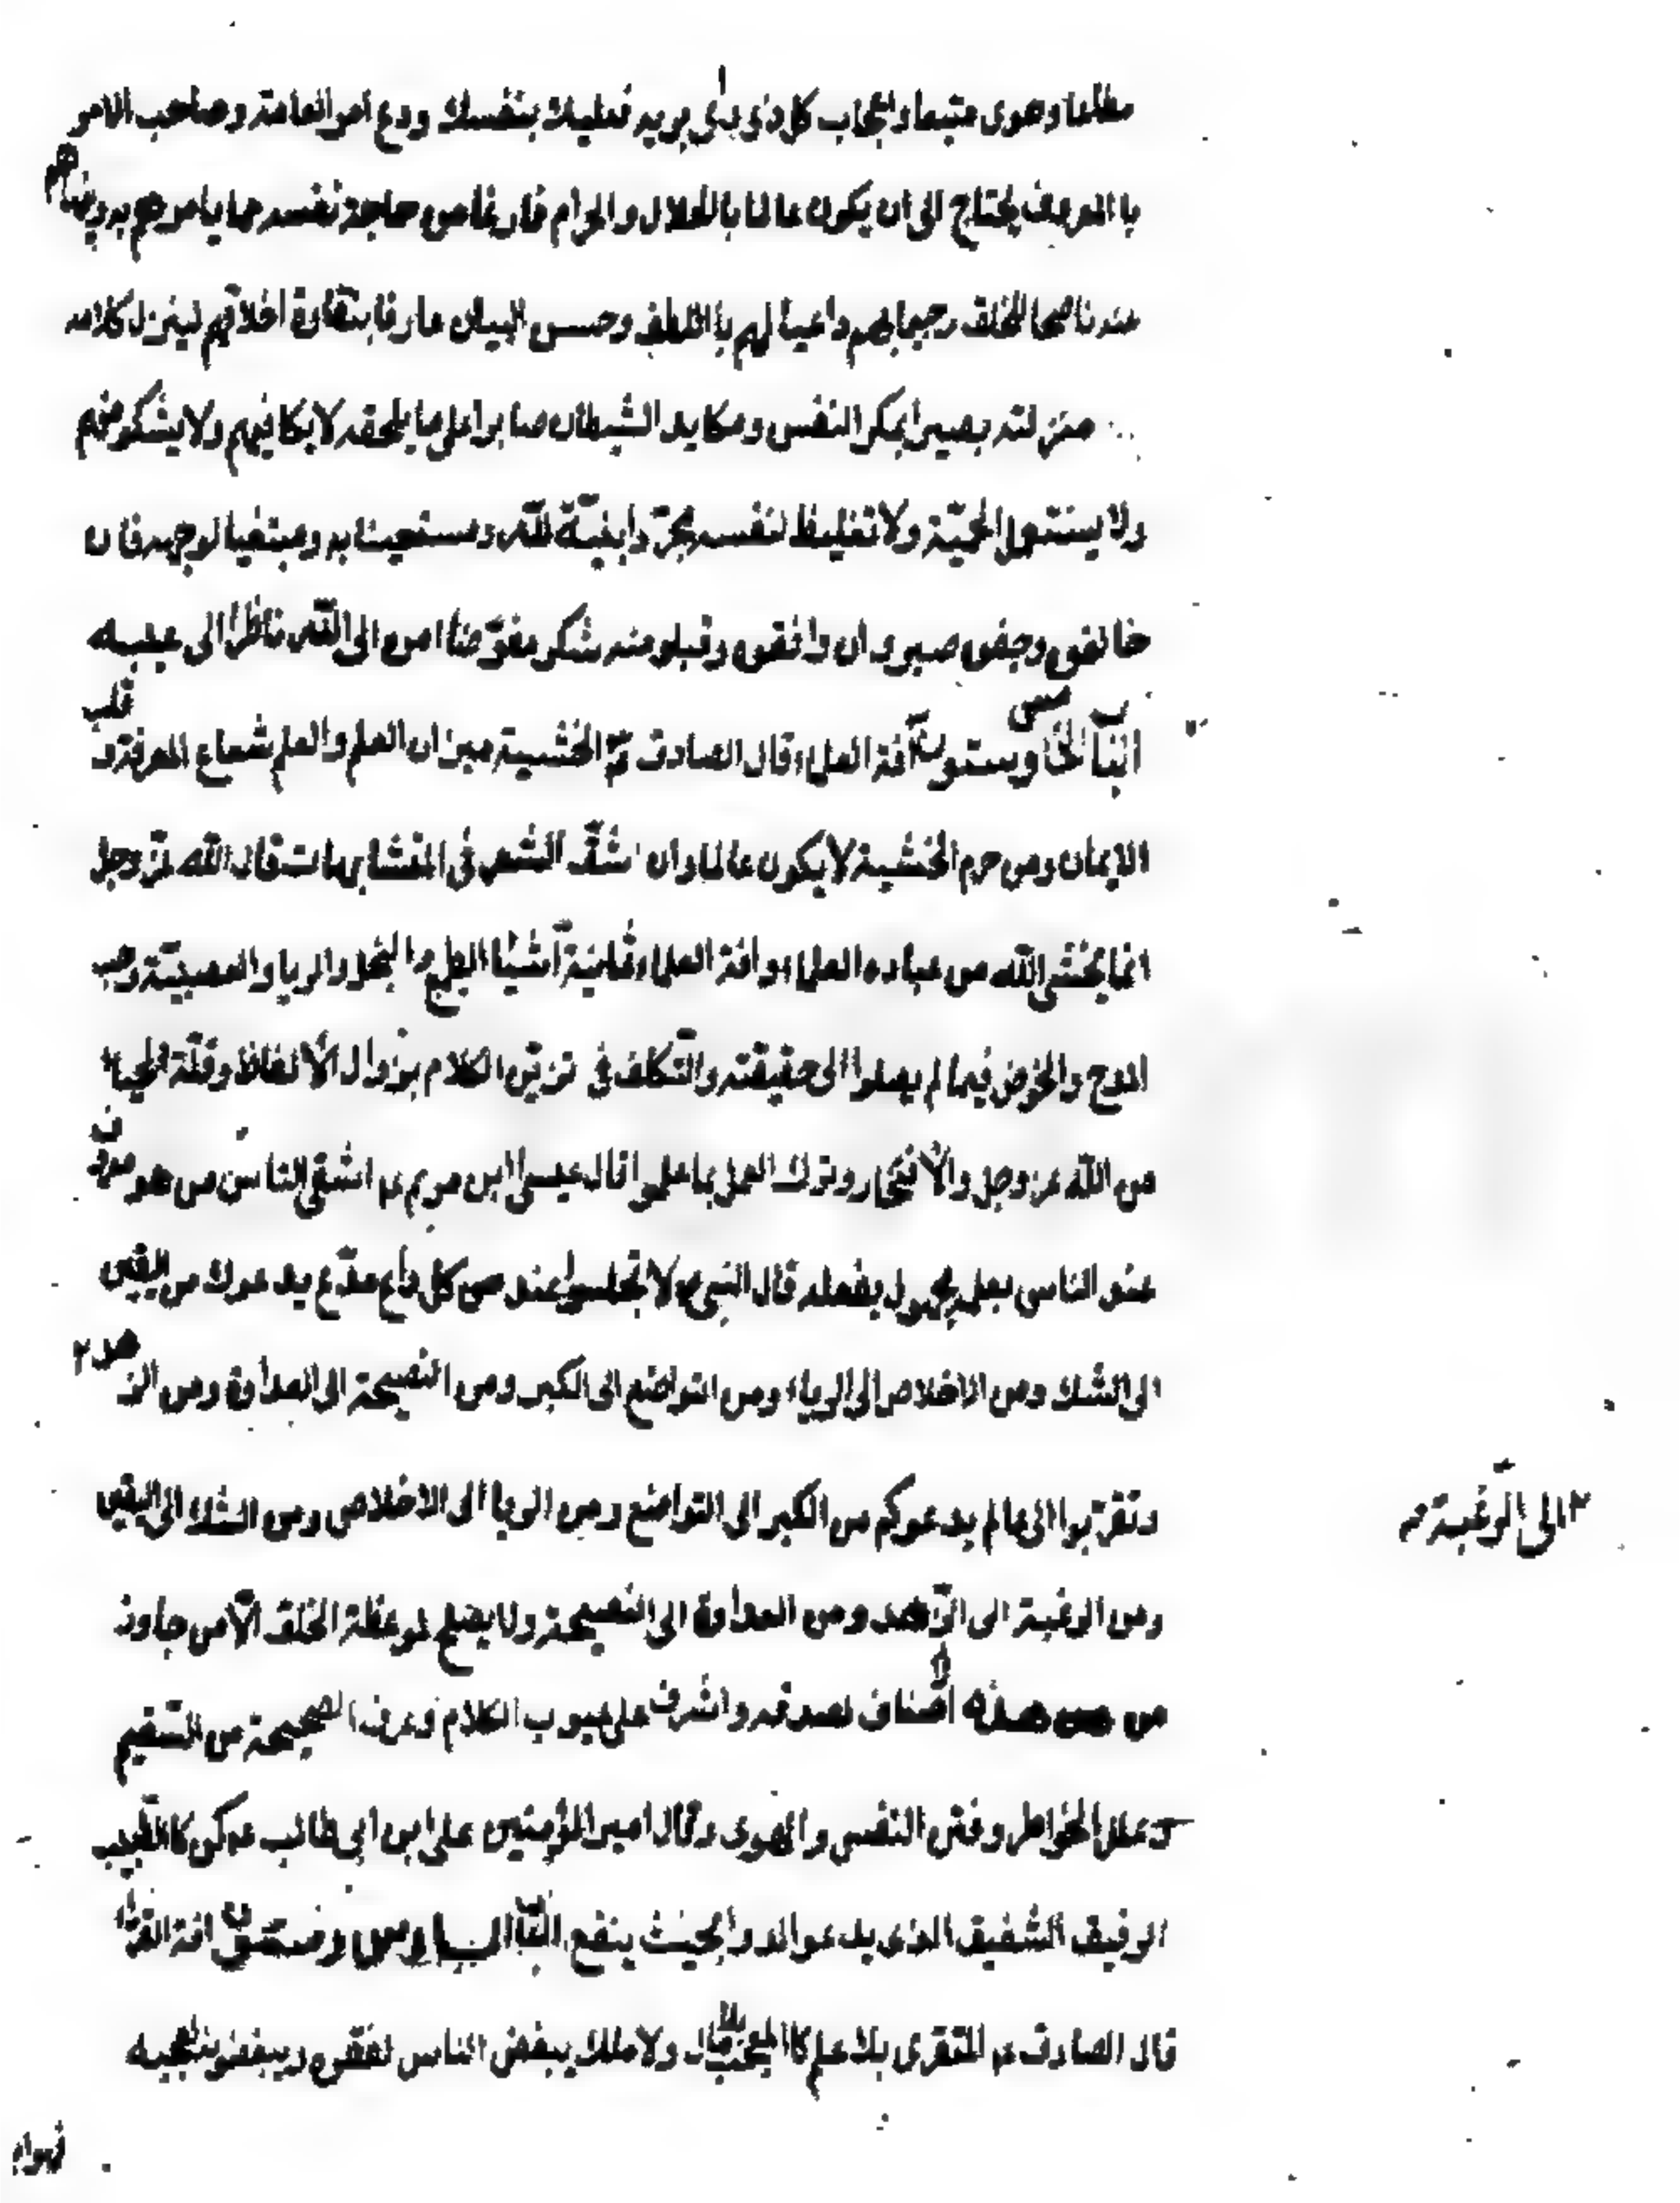 مطاعا وهوى متبعا واعجاب كل ذى راى برايه فعليك بنفسك ودع امر العامة وصاحب الامر
بالمعروف يحتاج الى ان يكون عالما بالحلال والحرام فارغا من حاجة نفسه مما يامرهم به وينهاهم
عنه ناصحا للخلق رحيما بهم داعيا لهم باللطف وحسن البيان عارفا بتفاوة اخلاقهم لينزل كلامه
منزلته بصيرا بمكر النفس ومكايد الشيطان صابرا على ما يلحقه لا يكافيهم ولا يشكو منهم
ولا يستعمل الحميّة ولا تغليظا لنفسه مجرّدا بنيّة للّه ومستعينا به ومبتغيا لوجهه فان
خالفوه وجفوه صبر وان وافقوه وقبلو منه شكر مفوّضا امره الى اللّه ناظرا الى عيبه
الباب الخامس وستون آفة العلماء قال الصادق ع الخشية ميزان العلم والعلم شعاع المعرفة و قلب
الايمان ومن حرم الخشية لا يكون عالما وان شقّ الشعر فى المتشابهات قال اللّه عزّ وجل
انما يخشى اللّه من عباده العلماء وافة العلماء ثمانية اشياء الطمع والبخل والريا والعصبيّة وحب
المدح والخوض فيما لم يصلوا الى حقيقته والتّكلف فى تزيّن الكلام بزوايد الألفاظ وقلّة الحياء
من اللّه عز وجل والأفتخار وترك العمل بما علموا قال عيسى ابن مريم ع اشقى الناس من هو معروف
عند الناس بعلمه مجهول بفعله قال النبى ص لا تجلسوا عند كل داع مدّع يدعوك من اليقين
الى الشك ومن الاخلاص الى الرياء ومن التواضع الى الكبر ومن النصيحة الى العداوة ومن الزهد ٢
وتقرّبوا الى عالم يدعوكم من الكبر الى التواضع ومن الريا الى الاخلاص ومن الشك الى اليقين
٢ الى الرّغبة
ومن الرغبة الى الزّهد ومن العداوة الى النصيحة ولا يصلح لموعظة الخلق الّا من جاوز
من هذه بصدقه واشرف على عيوب الكلام وعرف الصحيحة من السّقيم
وعلل الخواطر وفتن النفس والهوى وقال امير المؤمنين على ابن ابى طالب ع كن كالطّبيب
الرفيق الشفيق الذى يدع الدواء بحيث ينفع الباب السادس وستون افة القرّاء
قال الصادق ع المتقرى بلا علم كالمعجب بلا مال ولا ملك يبغض الناس لفقره ويبغضونه لعجبه
فهواء